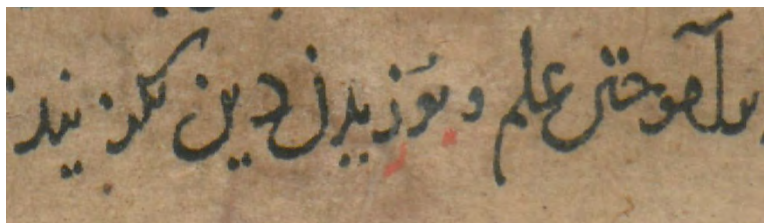 آموختن علم و بورزیدن دین بگزیند